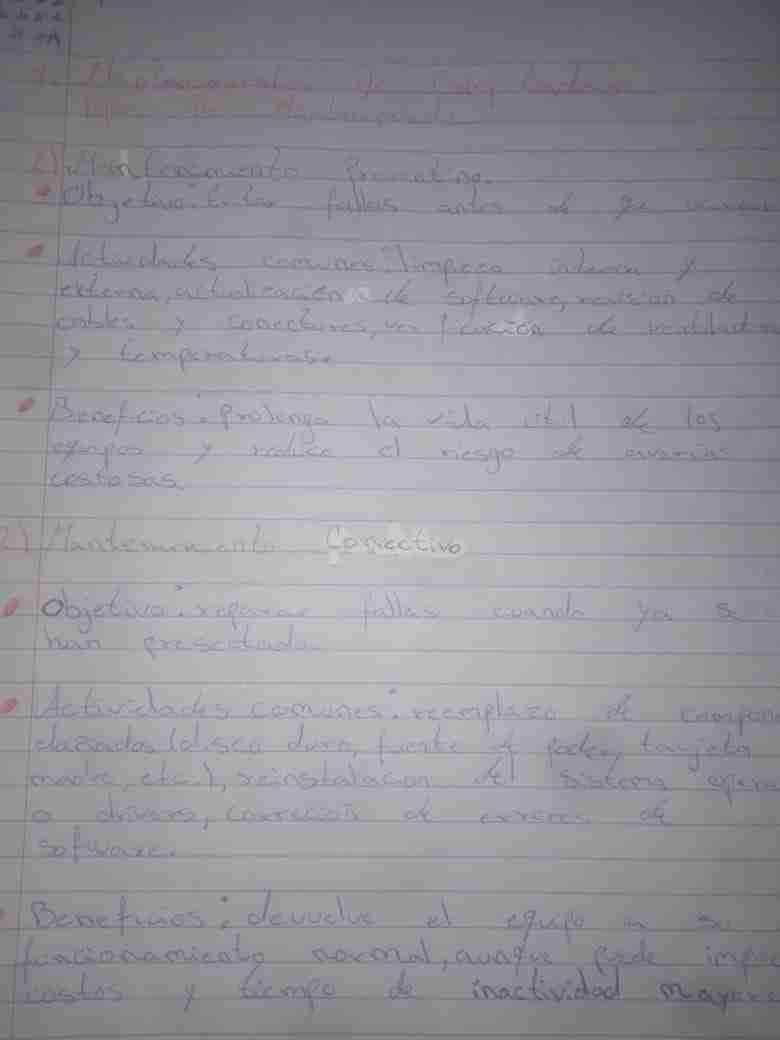 1. de
de
1) Mantenimiento
• Objetivo: fallas antes de
• Actividades comunes: limpieza interna y
externa, actualización de software, revisión de
cables y conectores, verificación de
y temperaturas.
• Beneficios: Prolonga la vida util de los
equipos y reduce el riesgo de averias
costosas
2) Mantenimiento Correctivo
• Objetivo: reparar fallas cuando ya se
han
• Actividades comunes: reemplazo de
(disco duro, fuente de poder, tarjeta
madre, etc.), reinstalacion del sistema
o drivers, de errores de
software.
Beneficios: devuelve el equipo a su
funcionamiento normal, aunque puede
costos y tiempo de inactividad